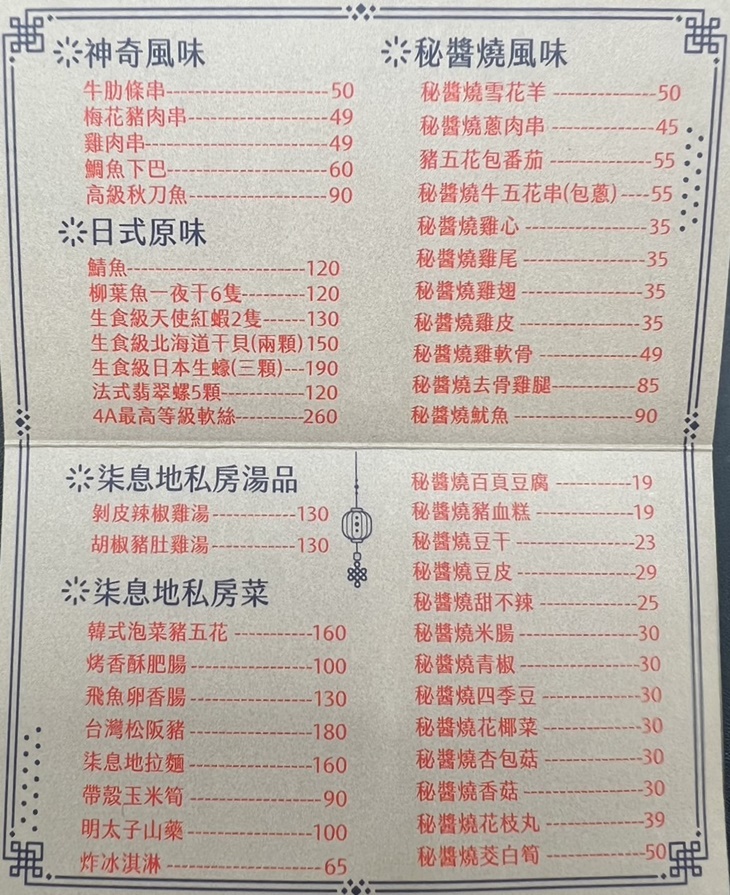 神奇風味
牛肋條串----------------------50
梅花豬肉串-------------------49
雞肉串-------------------------49
鯛魚下巴----------------------60
高級秋刀魚-------------------90
日式原味
鯖魚-------------------------120
柳葉魚一夜干6隻---------120
生食級天使紅蝦2隻------130
生食級北海道干貝(兩顆)150
生食級日本生蠔(三顆)---190
法式翡翠螺5顆------------120
4A最高等級軟絲----------260
柒息地私房湯品
剝皮辣椒雞湯------------130
胡椒豬肚雞湯------------130
柒息地私房菜
韓式泡菜豬五花 -----------160
烤香酥肥腸 ----------------100
飛魚卵香腸 ----------------130
台灣松阪豬 ----------------180
柒息地拉麵 ----------------160
帶殼玉米筍 -----------------90
明太子山藥 ----------------100
炸冰淇淋 --------------------65
秘醬燒風味
秘醬燒雪花羊 --------------50
秘醬燒蔥肉串 --------------45
豬五花包番茄 --------------55
秘醬燒牛五花串(包蔥)----55
秘醬燒雞心 -----------------35
秘醬燒雞尾 -----------------35
秘醬燒雞翅 -----------------35
秘醬燒雞皮 -----------------35
秘醬燒雞軟骨 --------------49
秘醬燒去骨雞腿------------85
秘醬燒魷魚 -----------------90
秘醬燒百頁豆腐 -----------19
秘醬燒豬血糕 --------------19
秘醬燒豆干 -----------------23
秘醬燒豆皮 -----------------29
秘醬燒甜不辣 --------------25
秘醬燒米腸 -----------------30
秘醬燒青椒 -----------------30
秘醬燒四季豆 --------------30
秘醬燒花椰菜 --------------30
秘醬燒杏包菇 --------------30
秘醬燒香菇 -----------------30
秘醬燒花枝丸 --------------39
秘醬燒茭白筍 --------------50